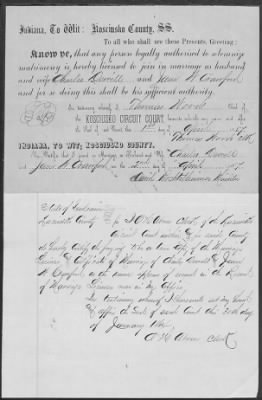 Indiana, To Wit: Kosciusko County, SS.
To all who shall see these Presents, Greeting:
Know ye, that any person legally authorised to solemnize
matrimony is hereby licensed to join in marriage as husband
and wife Charles and W. Crawford
and for so doing this shall be his sufficient authority.
In testimony whereof I Thomas Woods Clerk of the
KOSCIUSKO CIRCUIT COURT
Seal of said Court this 1st day of April
Thomas Woods Clk
INDIANA, TO WIT; KOSCIUSKO COUNTY.
This Certifies that I joined in Marriage, as Husband and Wife Charles
and W. Crawford on the day of April
Minister
State of Indiana
Kosciusko County I Clerk of the Kosciusko
Circuit Court within & for said County
do hereby certify the foregoing to be a true Copy of the Marriage
License & Certificate of Marriage of Charles &
Crawford as the same appears of record in the Records
of Marriage Licenses now in my Office,
In testimony whereof I hereunto set my hand
& affix the Seal of said Court this 30th day
of January
Clerk